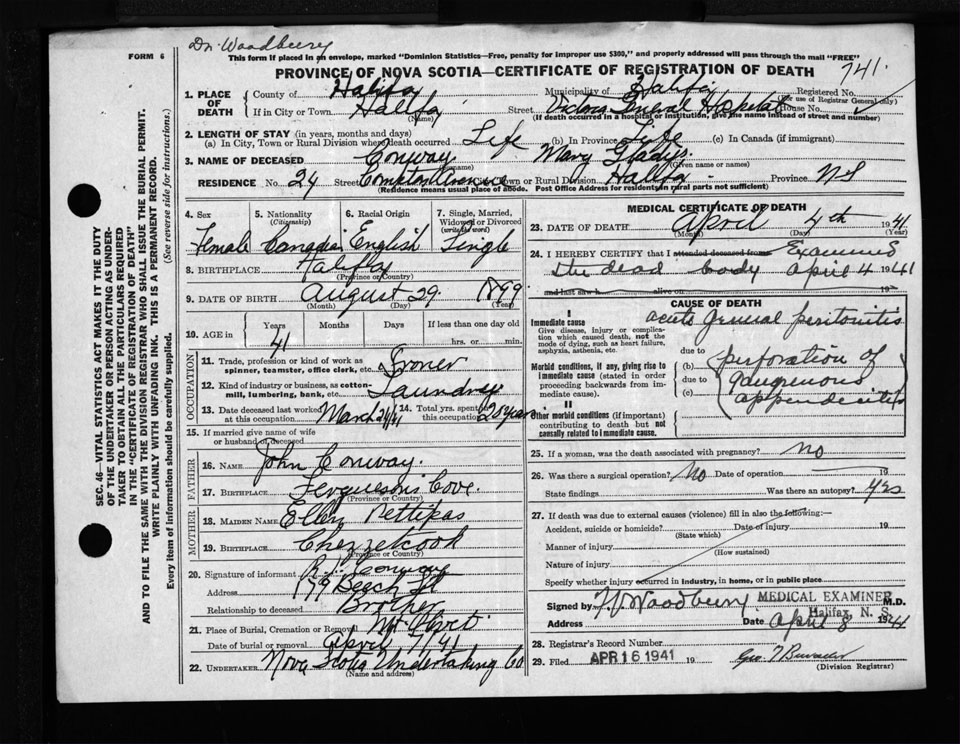 Dr. Woodbury
FORM 6
This form if placed in an envelope, marked "Dominion Statistics—Free, penalty for improper use $300," and properly addressed will pass through the mail "FREE"
PROVINCE OF NOVA SCOTIA—CERTIFICATE OF REGISTRATION OF DEATH
741.
SEC. 46—VITAL STATISTICS ACT MAKES IT THE DUTY
OF THE UNDERTAKER OR PERSON ACTING AS UNDER-
TAKER TO OBTAIN ALL THE PARTICULARS REQUIRED
IN THE "CERTIFICATE OF REGISTRATION OF DEATH"
AND TO FILE THE SAME WITH THE DIVISION REGISTRAR WHO SHALL ISSUE THE BURIAL PERMIT.
WRITE PLAINLY WITH UNFADING INK. THIS IS A PERMANENT RECORD.
Every item of information should be carefully supplied. (See reverse side for instructions.)
1. PLACE OF DEATH
County of Halifax Municipality of Halifax Registered No.
(For use of Registrar General only)
If in City or Town Halifax Street Victoria General Hospital House No.
(Name) (If death occurred in a hospital or institution, give the name instead of street and number)
2. LENGTH OF STAY (in years, months and days)
(a) In City, Town or Rural Division where death occurred Life (b) In Province Life (c) In Canada (if immigrant)
3. NAME OF DECEASED Conway Mary Gladys
(Given name or names)
RESIDENCE No. 24 Street Compton Avenue City/Town or Rural Division Halifax Province NS
(Residence means usual place of abode. Post Office Address for residents in rural parts not sufficient)
4. Sex Female
5. Nationality (Citizenship) Canadian
6. Racial Origin English
7. Single, Married, Widowed or Divorced (write the word) Single
8. BIRTHPLACE Halifax
(Province or Country)
9. DATE OF BIRTH August 29 1899
(Month) (Day) (Year)
10. AGE in Years 41 Months Days If less than one day old hrs. or min.
OCCUPATION
11. Trade, profession or kind of work as spinner, teamster, office clerk, etc. Ironer
12. Kind of industry or business, as cotton-mill, lumbering, bank, etc. Laundry
13. Date deceased last worked at this occupation March 21/41
14. Total yrs. spent in this occupation 20 years
15. If married give name of wife or husband of deceased
FATHER
16. NAME John Conway.
17. BIRTHPLACE Fergusons Cove.
(Province or Country)
MOTHER
18. MAIDEN NAME Ellen Pettipas
19. BIRTHPLACE Chezzetcook
(Province or Country)
20. Signature of informant Conway
Address 179 Beech St
Relationship to deceased Brother
21. Place of Burial, Cremation or Removal Mt Olivet
Date of burial or removal April 7/41
22. UNDERTAKER Nova Scotia Undertaking Co
(Name and address)
MEDICAL CERTIFICATE OF DEATH
23. DATE OF DEATH April 4th 1941
(Month) (Day) (Year)
24. I HEREBY CERTIFY that I attended deceased from Examined
the dead body April 4 1941
and last saw h alive on 19
CAUSE OF DEATH
I
Immediate cause
Give disease, injury or complication which caused death, not the mode of dying, such as heart failure, asphyxia, asthenia, etc.
acute general peritonitis
Morbid conditions, if any, giving rise to immediate cause (stated in order proceeding backwards from immediate cause).
due to
(b) perforation of
due to gangrenous
(c) appendicitis
II
Other morbid conditions (if important) contributing to death but not causally related to immediate cause.
25. If a woman, was the death associated with pregnancy? No
26. Was there a surgical operation? No Date of operation 19
State findings Was there an autopsy? Yes
27. If death was due to external causes (violence) fill in also the following:—
Accident, suicide or homicide? Date of injury 19
(State which)
Manner of injury
(How sustained)
Nature of injury
Specify whether injury occurred in industry, in home, or in public place
MEDICAL EXAMINER
Signed by Woodbury M.D.
Halifax, N. S.
Address Date April 8 1941
28. Registrar's Record Number
29. Filed APR 16 1941 19
(Division Registrar)